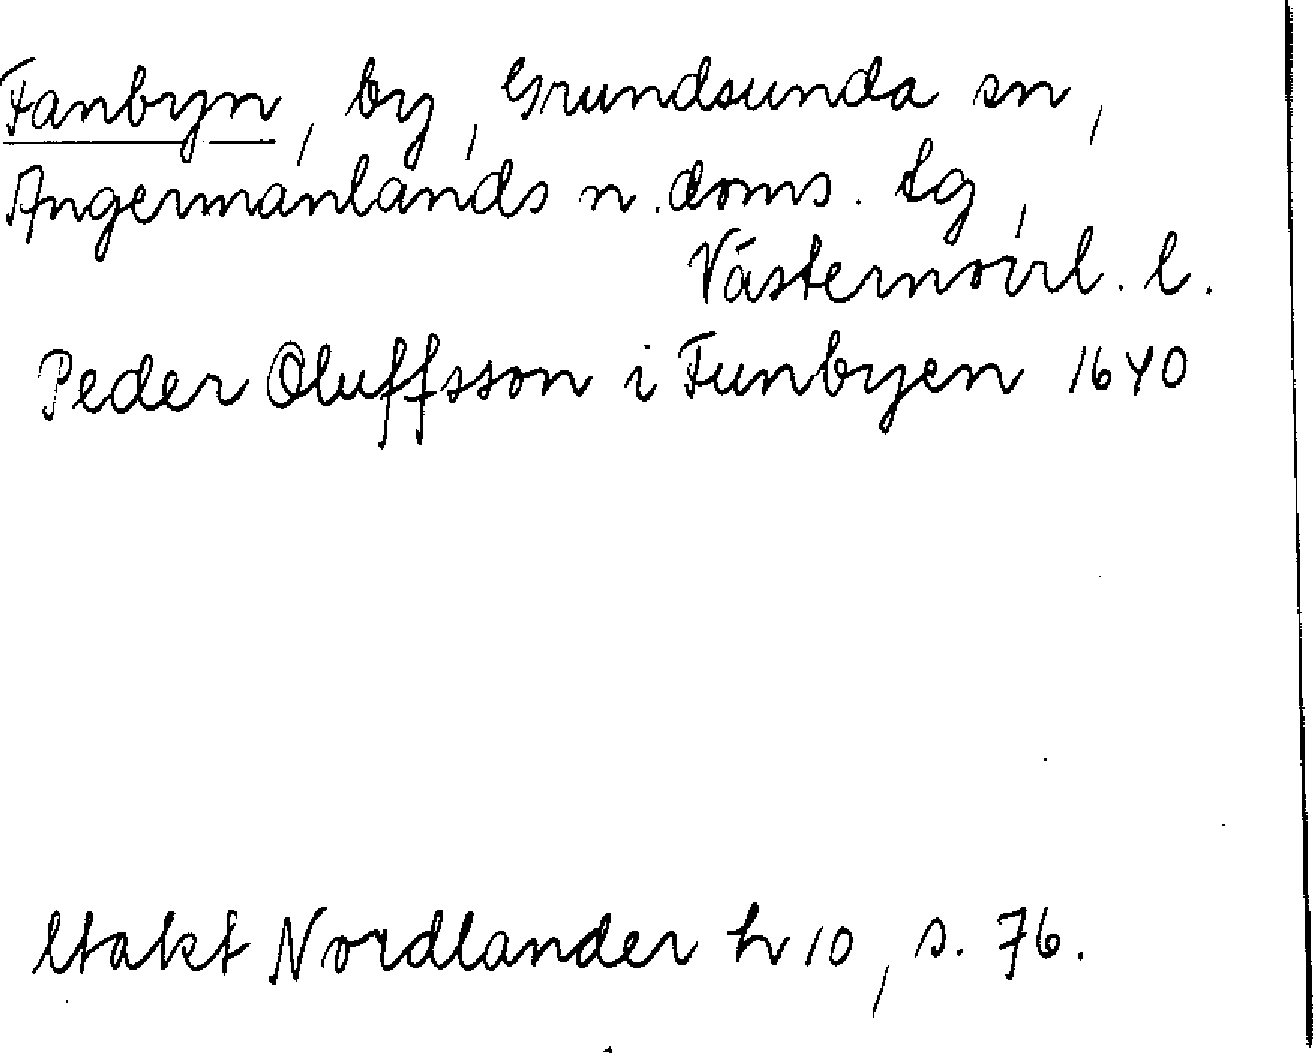 Fanbyn, by, Grundsunda sn,
Ångermanlands n. doms. tg,
Västernorrl. l.
Peder Oluffsson i Funbyen 1640
Utakt Nordlander h 10, s. 76.